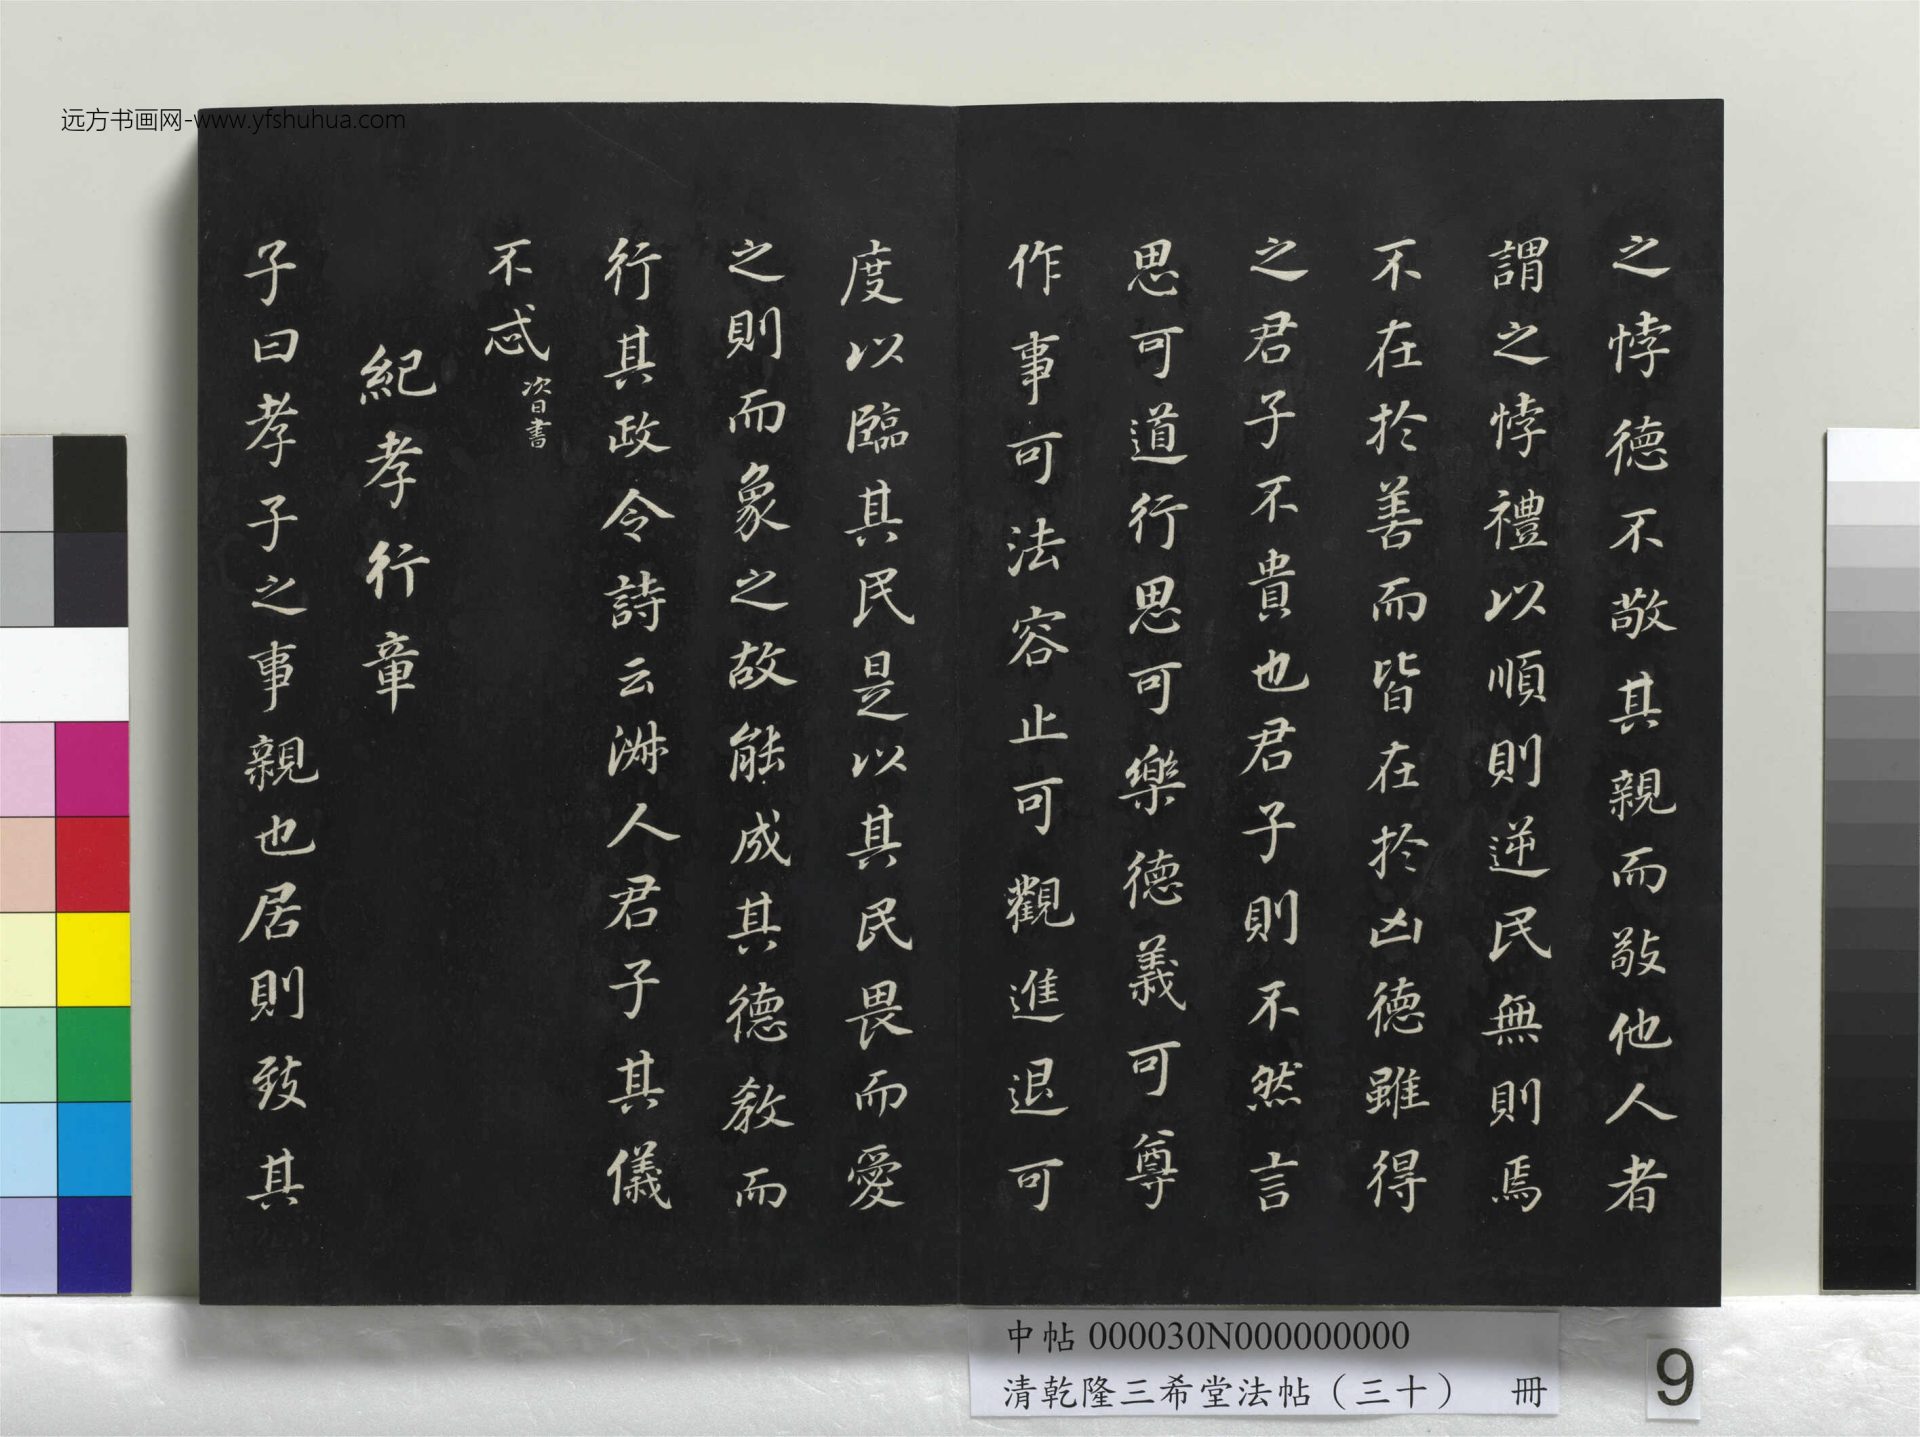 远方书画网-www.yfshuhua.com
之悖德不敬其親而敬他人者
謂之悖禮以順則逆民無則焉
不在於善而皆在於凶德雖得
之君子不貴也君子則不然言
思可道行思可樂德義可尊
作事可法容止可觀進退可
度以臨其民是以其民畏而愛
之則而象之故能成其德教而
行其政令詩云淋人君子其儀
不忒
次日書
紀孝行章
子曰孝子之事親也居則致其
中帖 000030N000000000
清乾隆三希堂法帖（三十） 冊
9